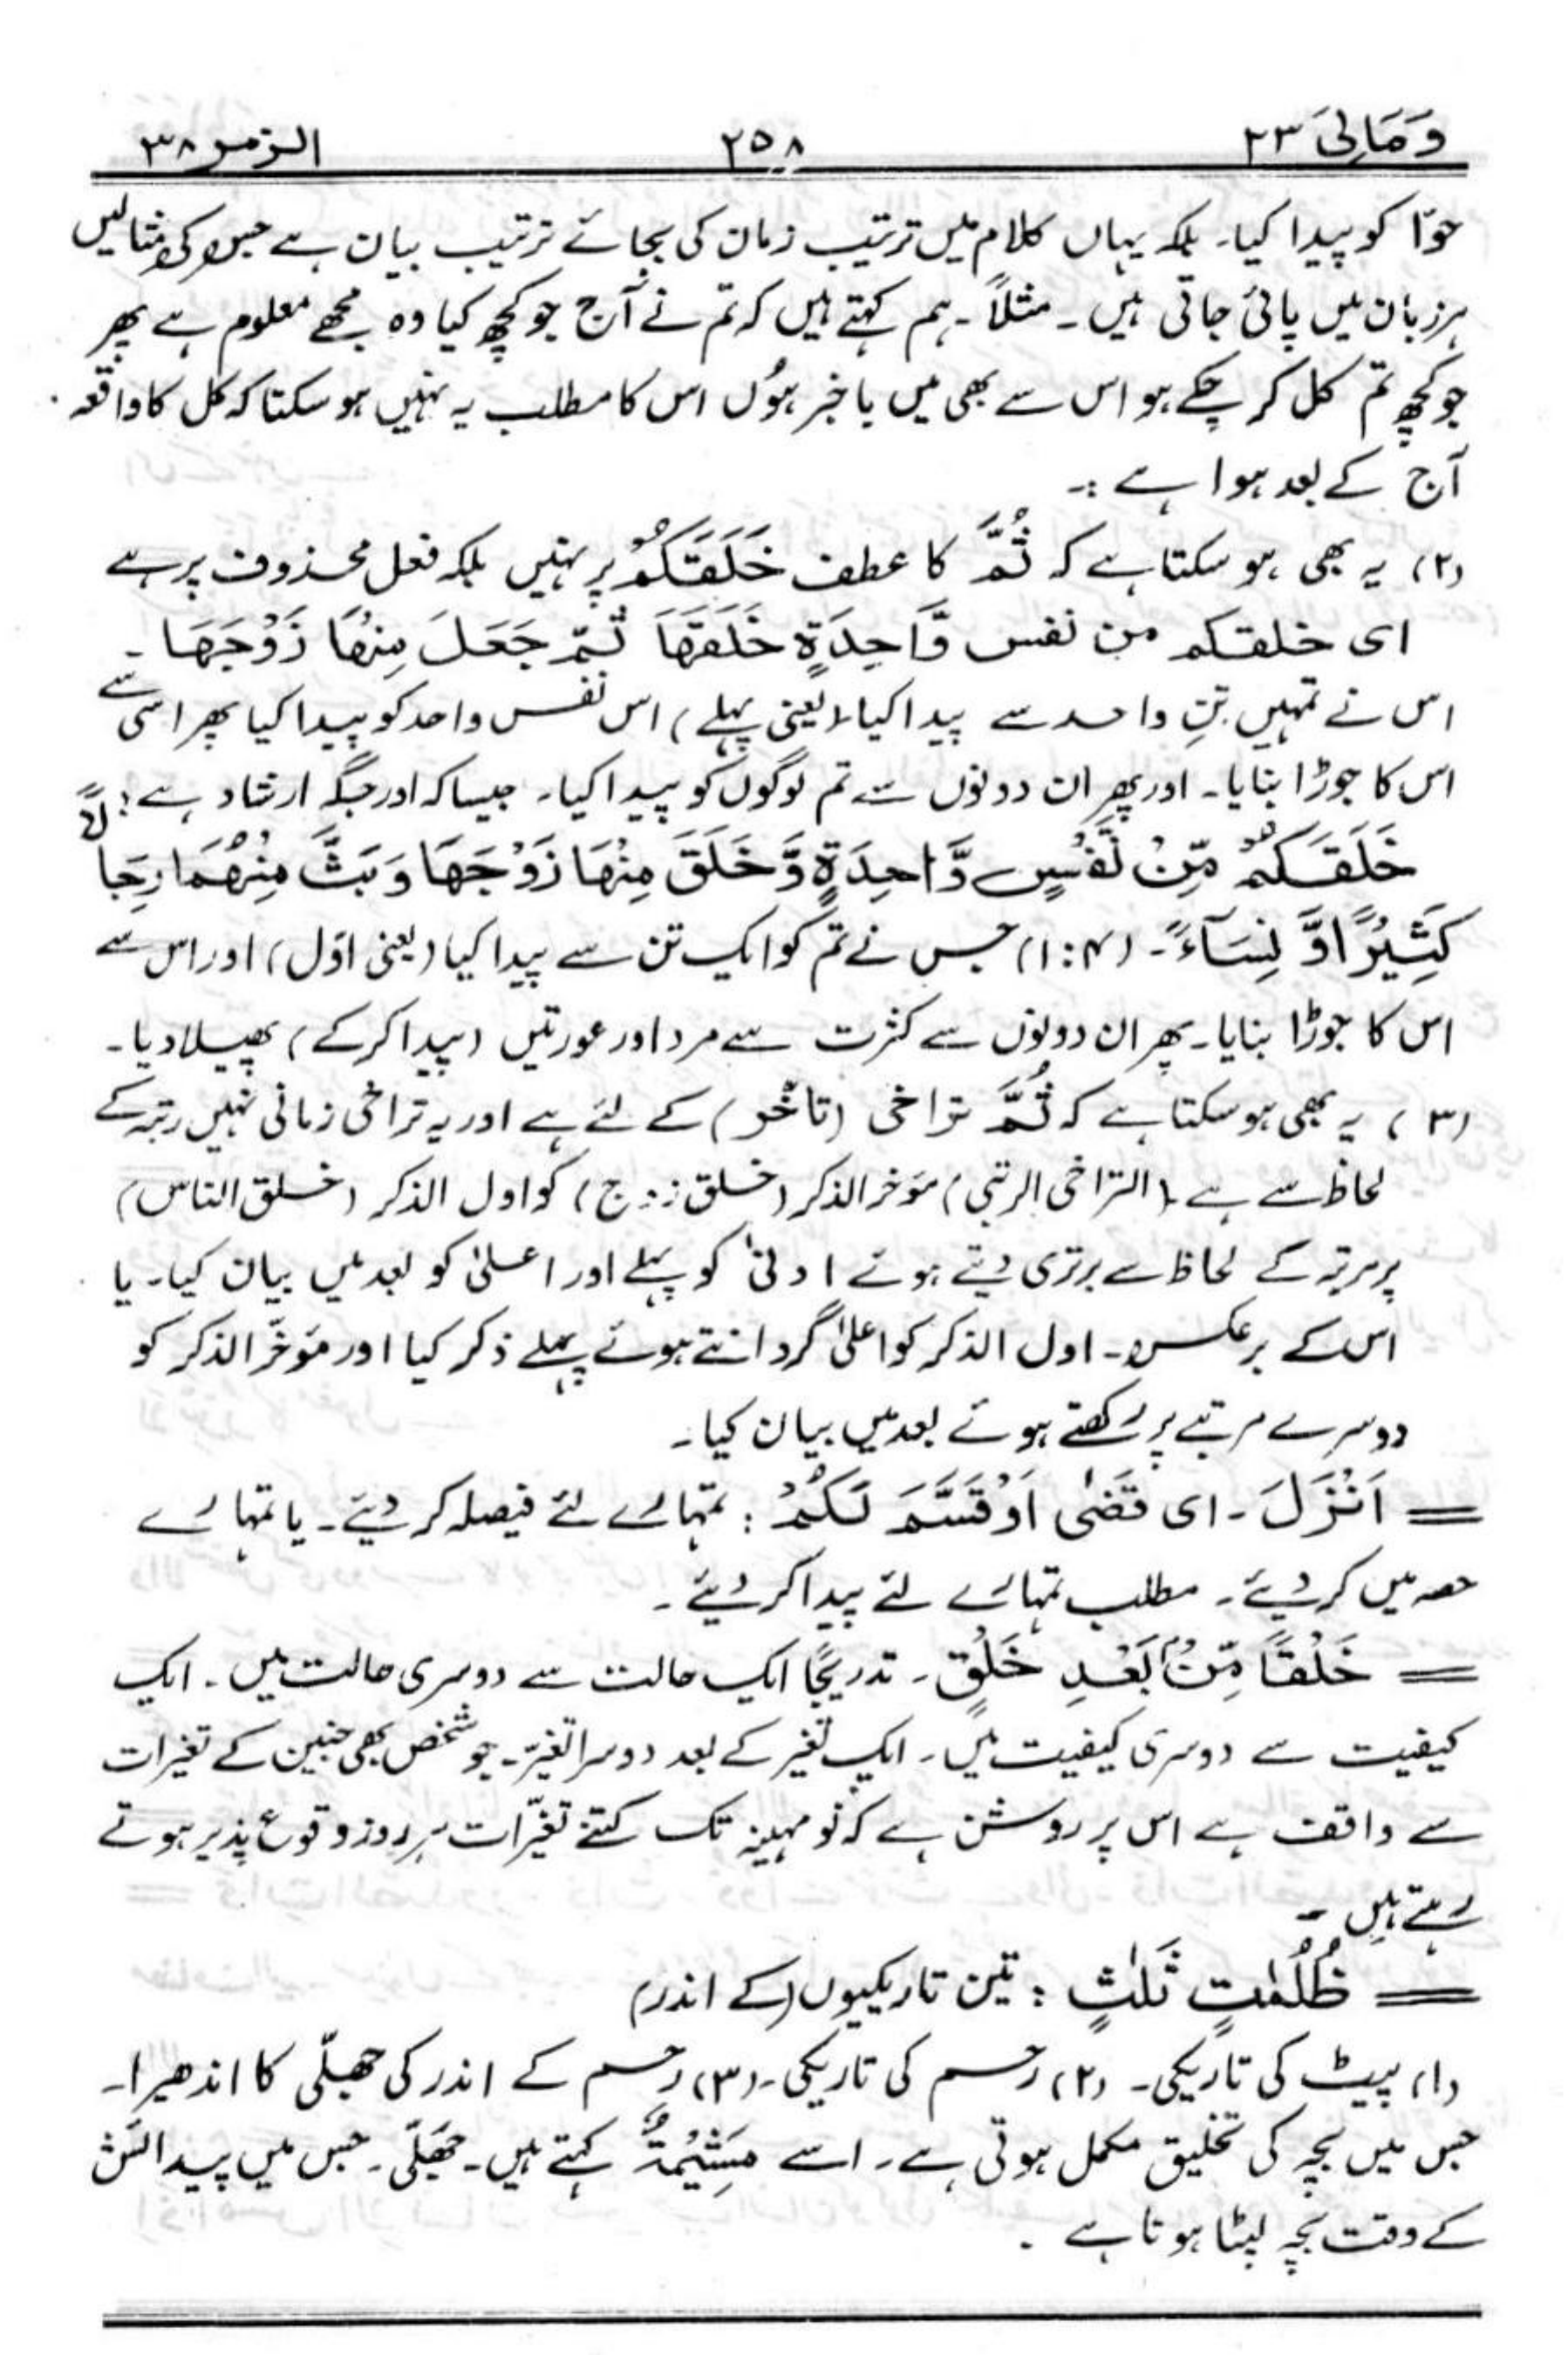 وَمَالِیَ ۲۳ ۲۵۸ الزمر ۳۸
حوّا کو پیدا کیا۔ بلکہ یہاں کلام میں ترتیب زمان کی بجائے ترتیب بیان ہے جس کی مثالیں
ہر زبان میں پائی جاتی ہیں۔ مثلاً۔ ہم کہتے ہیں کہ تم نے آج جو کچھ کیا وہ مجھے معلوم ہے پھر
جو کچھ تم کل کر چکے ہو اس سے بھی میں باخبر ہوُں اس کا مطلب یہ نہیں ہو سکتا کہ کل کا واقعہ
آج کے بعد ہوا ہے :۔
(۲) یہ بھی ہو سکتا ہے کہ ثُمَّ کا عطف خَلَقَكُمْ پر نہیں بلکہ فعل محذوف پر ہے
ای خلقکم من نفس وَّاحِدَةٍ خَلَقَهَا ثُمَّ جَعَلَ مِنْهَا زَوْجَهَا۔
اس نے تمہیں تنِ واحد سے پیدا کیا (یعنی پہلے) اس نفس واحد کو پیدا کیا پھر اسی سے
اس کا جوڑا بنایا۔ اور پھر ان دونوں سے تم لوگوں کو پیدا کیا۔ جیسا کہ اور جگہ ارشاد ہے :
خَلَقَكُمْ مِّنْ نَّفْسٍ وَّاحِدَةٍ وَّخَلَقَ مِنْهَا زَوْجَهَا وَبَثَّ مِنْهُمَا رِجَالًا
كَثِيْرًا وَّ نِسَآءً۔ (۴:۱) جس نے تم کو ایک تن سے پیدا کیا (یعنی اوّل) اور اس سے
اس کا جوڑا بنایا۔ پھر ان دونوں سے کثرت سے مرد اور عورتیں (پیدا کر کے) پھیلا دیا۔
(۳) یہ بھی ہو سکتا ہے کہ ثُمَّ تراخی (تأخر) کے لئے ہے اور یہ تراخی زمانی نہیں رتبہ کے
لحاظ سے ہے۔ (التراخی الرتبی) مؤخر الذکر (خلق زوج) کو اول الذکر (خلق الناس)
پر مرتبہ کے لحاظ سے برتری دیتے ہوئے ادنیٰ کو پہلے اور اعلیٰ کو بعد میں بیان کیا۔ یا
اس کے برعکس۔ اول الذکر کو اعلیٰ گردانتے ہوئے پہلے ذکر کیا اور مؤخّر الذکر کو
دوسرے مرتبے پر رکھتے ہوئے بعد میں بیان کیا۔
= اَنْزَلَ۔ ای قَضٰی اَوْ قَسَّمَ لَكُمْ : تمہارے لئے فیصلہ کر دیئے۔ یا تمہارے
حصہ میں کر دیئے۔ مطلب تمہارے لئے پیدا کر دیئے۔
= خَلْقًا مِّنْۢ بَعْدِ خَلْقٍ۔ تدریجًا ایک حالت سے دوسری حالت میں۔ ایک
کیفیت سے دوسری کیفیت میں۔ ایک تغیر کے بعد دوسرا تغیّر۔ جو شخص بھی جنین کے تغیرات
سے واقف ہے اس پر روشن ہے کہ نو مہینہ تک کتنے تغیّرات ہر روز وقوع پذیر ہوتے
رہتے ہیں۔
= ظُلُمٰتٍ ثَلٰثٍ : تین تاریکیوں (کے اندر)
(۱) پیٹ کی تاریکی۔ (۲) رحم کی تاریکی۔ (۳) رحم کے اندر کی جھلّی کا اندھیرا۔
جس میں بچہ کی تخلیق مکمل ہوتی ہے۔ اسے مَشِيْمَةٌ کہتے ہیں۔ جھلّی۔ جس میں پیدائش
کے وقت بچہ لپٹا ہوتا ہے۔